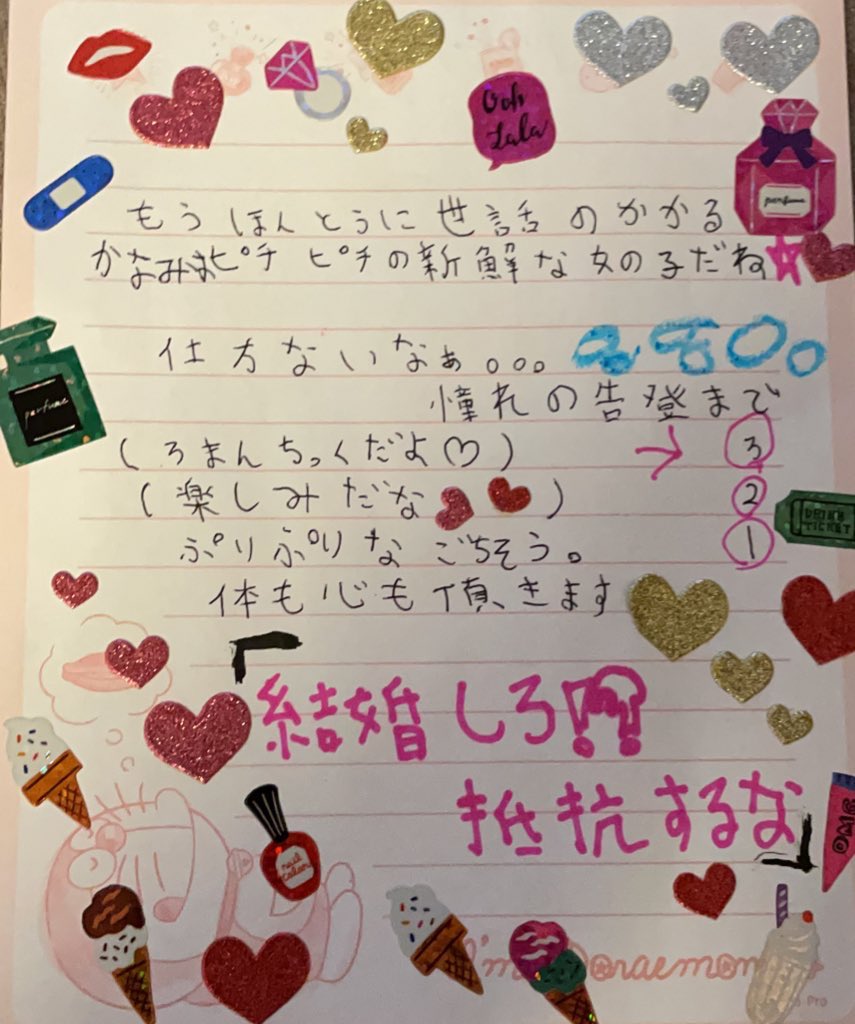 Ooh
Lala
perfume
もうほんとうに世話のかかる
かなみはピチピチの新鮮な女の子だね☆
仕方ないなぁ。。。
perfume
憧れの告登まで
(ろまんちっくだよ♡) → ③
(楽しみだな ) ②
DRINK
TICKET
ぷりぷりなごちそう。 ①
体も心も頂きます
「結婚しろ⁉
抵抗するな」
OMG
nail
color
I'm Doraemon